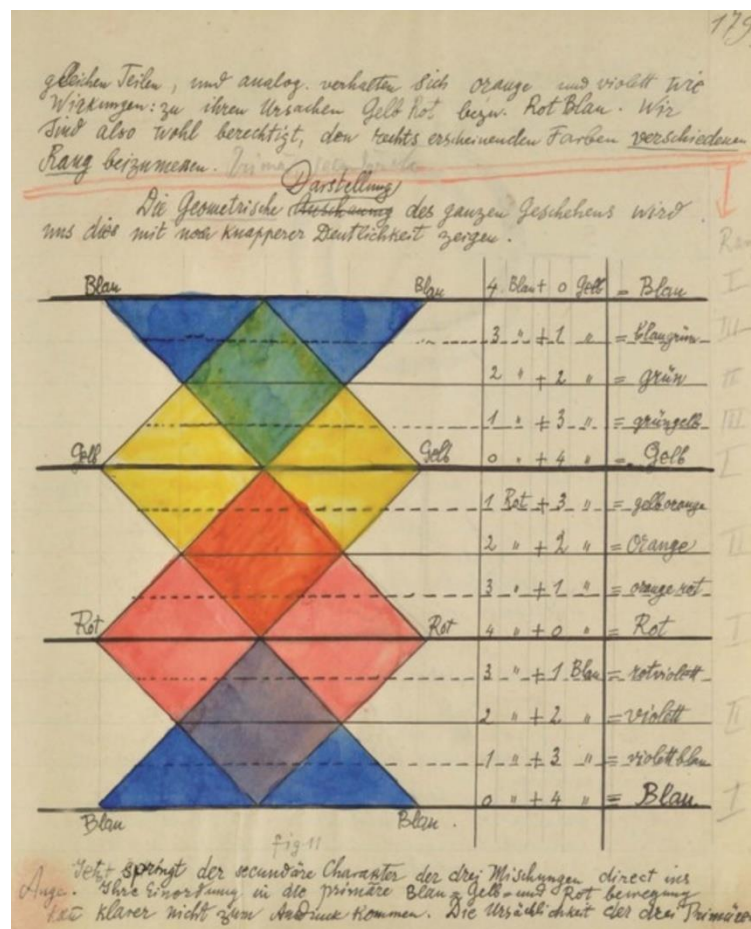 179
gleichen Teilen, und analog. verhalten sich orange und violett wie
Wirkungen: zu ihren Ursachen Gelb Rot bezw. Rot Blau. Wir
sind also wohl berechtigt, den rechts erscheinenden Farben verschiedenen
Rang beizumessen.
Darstellung
Die Geometrische Anschauung des ganzen Geschehens wird
uns dies mit noch knapperer Deutlichkeit zeigen.
Blau Blau 4 Blau + 0 Gelb = Blau I
3 " + 1 " = blaugrün III
2 " + 2 " = grün II
1 " + 3 " = grüngelb III
Gelb Gelb 0 " + 4 " = Gelb I
1 Rot + 3 " = gelborange
2 " + 2 " = Orange II
3 " + 1 " = orangerot
Rot Rot 4 " + 0 " = Rot I
3 " + 1 Blau = rotviolett
2 " + 2 " = violett II
1 " + 3 " = violettblau
0 " + 4 " = Blau I
Blau Blau.
fig 11
Jetzt springt der secundäre Charakter der drei Mischungen direct ins
Auge. Ihre Einordnung in die primäre Blau = Gelb = und Rot bewegung
kann klarer nicht zum Ausdruck kommen. Die Ursächlichkeit der drei Primären